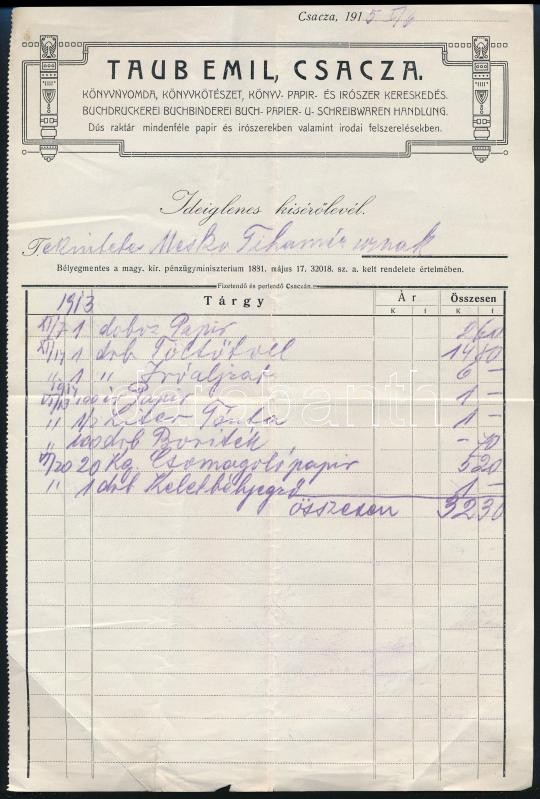 Csacza, 1915 I/9
TAUB EMIL, CSACZA.
KÖNYVNYOMDA, KÖNYVKÖTÉSZET, KÖNYV- PAPIR- ÉS IRÓSZER KERESKEDÉS.
BUCHDRUCKEREI BUCHBINDEREI BUCH- PAPIER- U- SCHREIBWAREN HANDLUNG.
Dús raktár mindenféle papir és irószerekben valamint irodai felszerelésekben.
Ideiglenes kisérőlevél.
Tekintetes Mesko Tihamér urnak
Bélyegmentes a magy. kir. pénzügyminiszterium 1881. május 17. 32018. sz. a. kelt rendelete értelmében.
Fizetendő és perlendő Csaczán.
1913 Tárgy Ár Összesen
K f K f
1 doboz Papir 2 60
1 drb Töltőtoll 14 80
" 1 " Iróaljzat 6 –
1914 100 ív Papir 1 –
" 1/2 Liter Tinta 1 –
" 100 drb Boriték – 70
20 20 Kg. Csomagolópapir 5 20
" 1 drb Keletbélyegző 1 –
összesen 32 30
darabanth